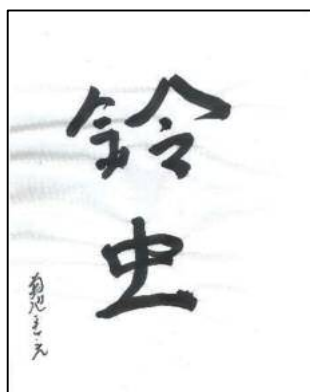 鈴虫
菊池